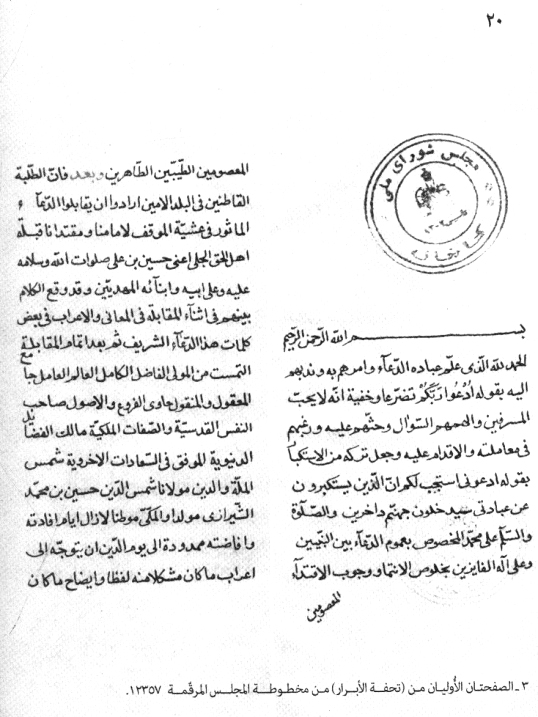 ٢٠
مجلس شورای ملی
کتابخانه
بسم الله الرحمن الرحیم
الحمد لله الذی علم عباده الدعاء وامرهم به وندبهم
الیه بقوله ادعوا ربکم تضرعا وخفیة انه لا یحب
المسرفین والهمهم السؤال وحثهم علیه ورغبهم
فی معاملته والاقدام علیه وجعل ترکه من الاستکبار
بقوله ادعونی استجب لکم ان الذین یستکبرون
عن عبادتی سیدخلون جهنم داخرین والصلوة
والسلم علی محمد المخصوص بعموم الدعاء بین النبیین
وعلی آله الفایزین بخلوص الانتماء ووجوب الاقتداء
المعصومین
المعصومین الطیبین الطاهرین وبعد فان الطلبة
القاطنین فی البلد الامین ارادوا ان یقابلوا الدعاء
الماثور فی عشیة الموقف لامامنا ومقتدانا قبلة
اهل الحق الجلی اعنی حسین بن علی صلوات الله وسلامه
علیه وعلی ابیه وابنائه المهدیین وقد وقع الکلام
بینهم فی اثناء المقابلة فی المعانی والاعراب فی بعض
کلمات هذا الدعاء الشریف ثم بعد اتمام المقابلة
التمست من المولی الفاضل الکامل العالم العامل جامع
المعقول والمنقول حاوی الفروع والاصول صاحب
النفس القدسیة والصفات الملکیة مالک الفضائل
الدنیویة الموفق فی السعادات الاخرویة شمس
الملة والدین مولانا شمس الدین حسین بن محمد
الشیرازی مولدا والمکی موطنا لا زال ایام افادته
وافاضته ممدودة الی یوم الدین ان یتوجه الی
اعراب ما کان مشکلا منه لفظا وایضاح ما کان
٣ ـ الصفحتان الأُوليان من (تحفة الأبرار) من مخطوطة المجلس المرقّمة ١٢٣٥٧.